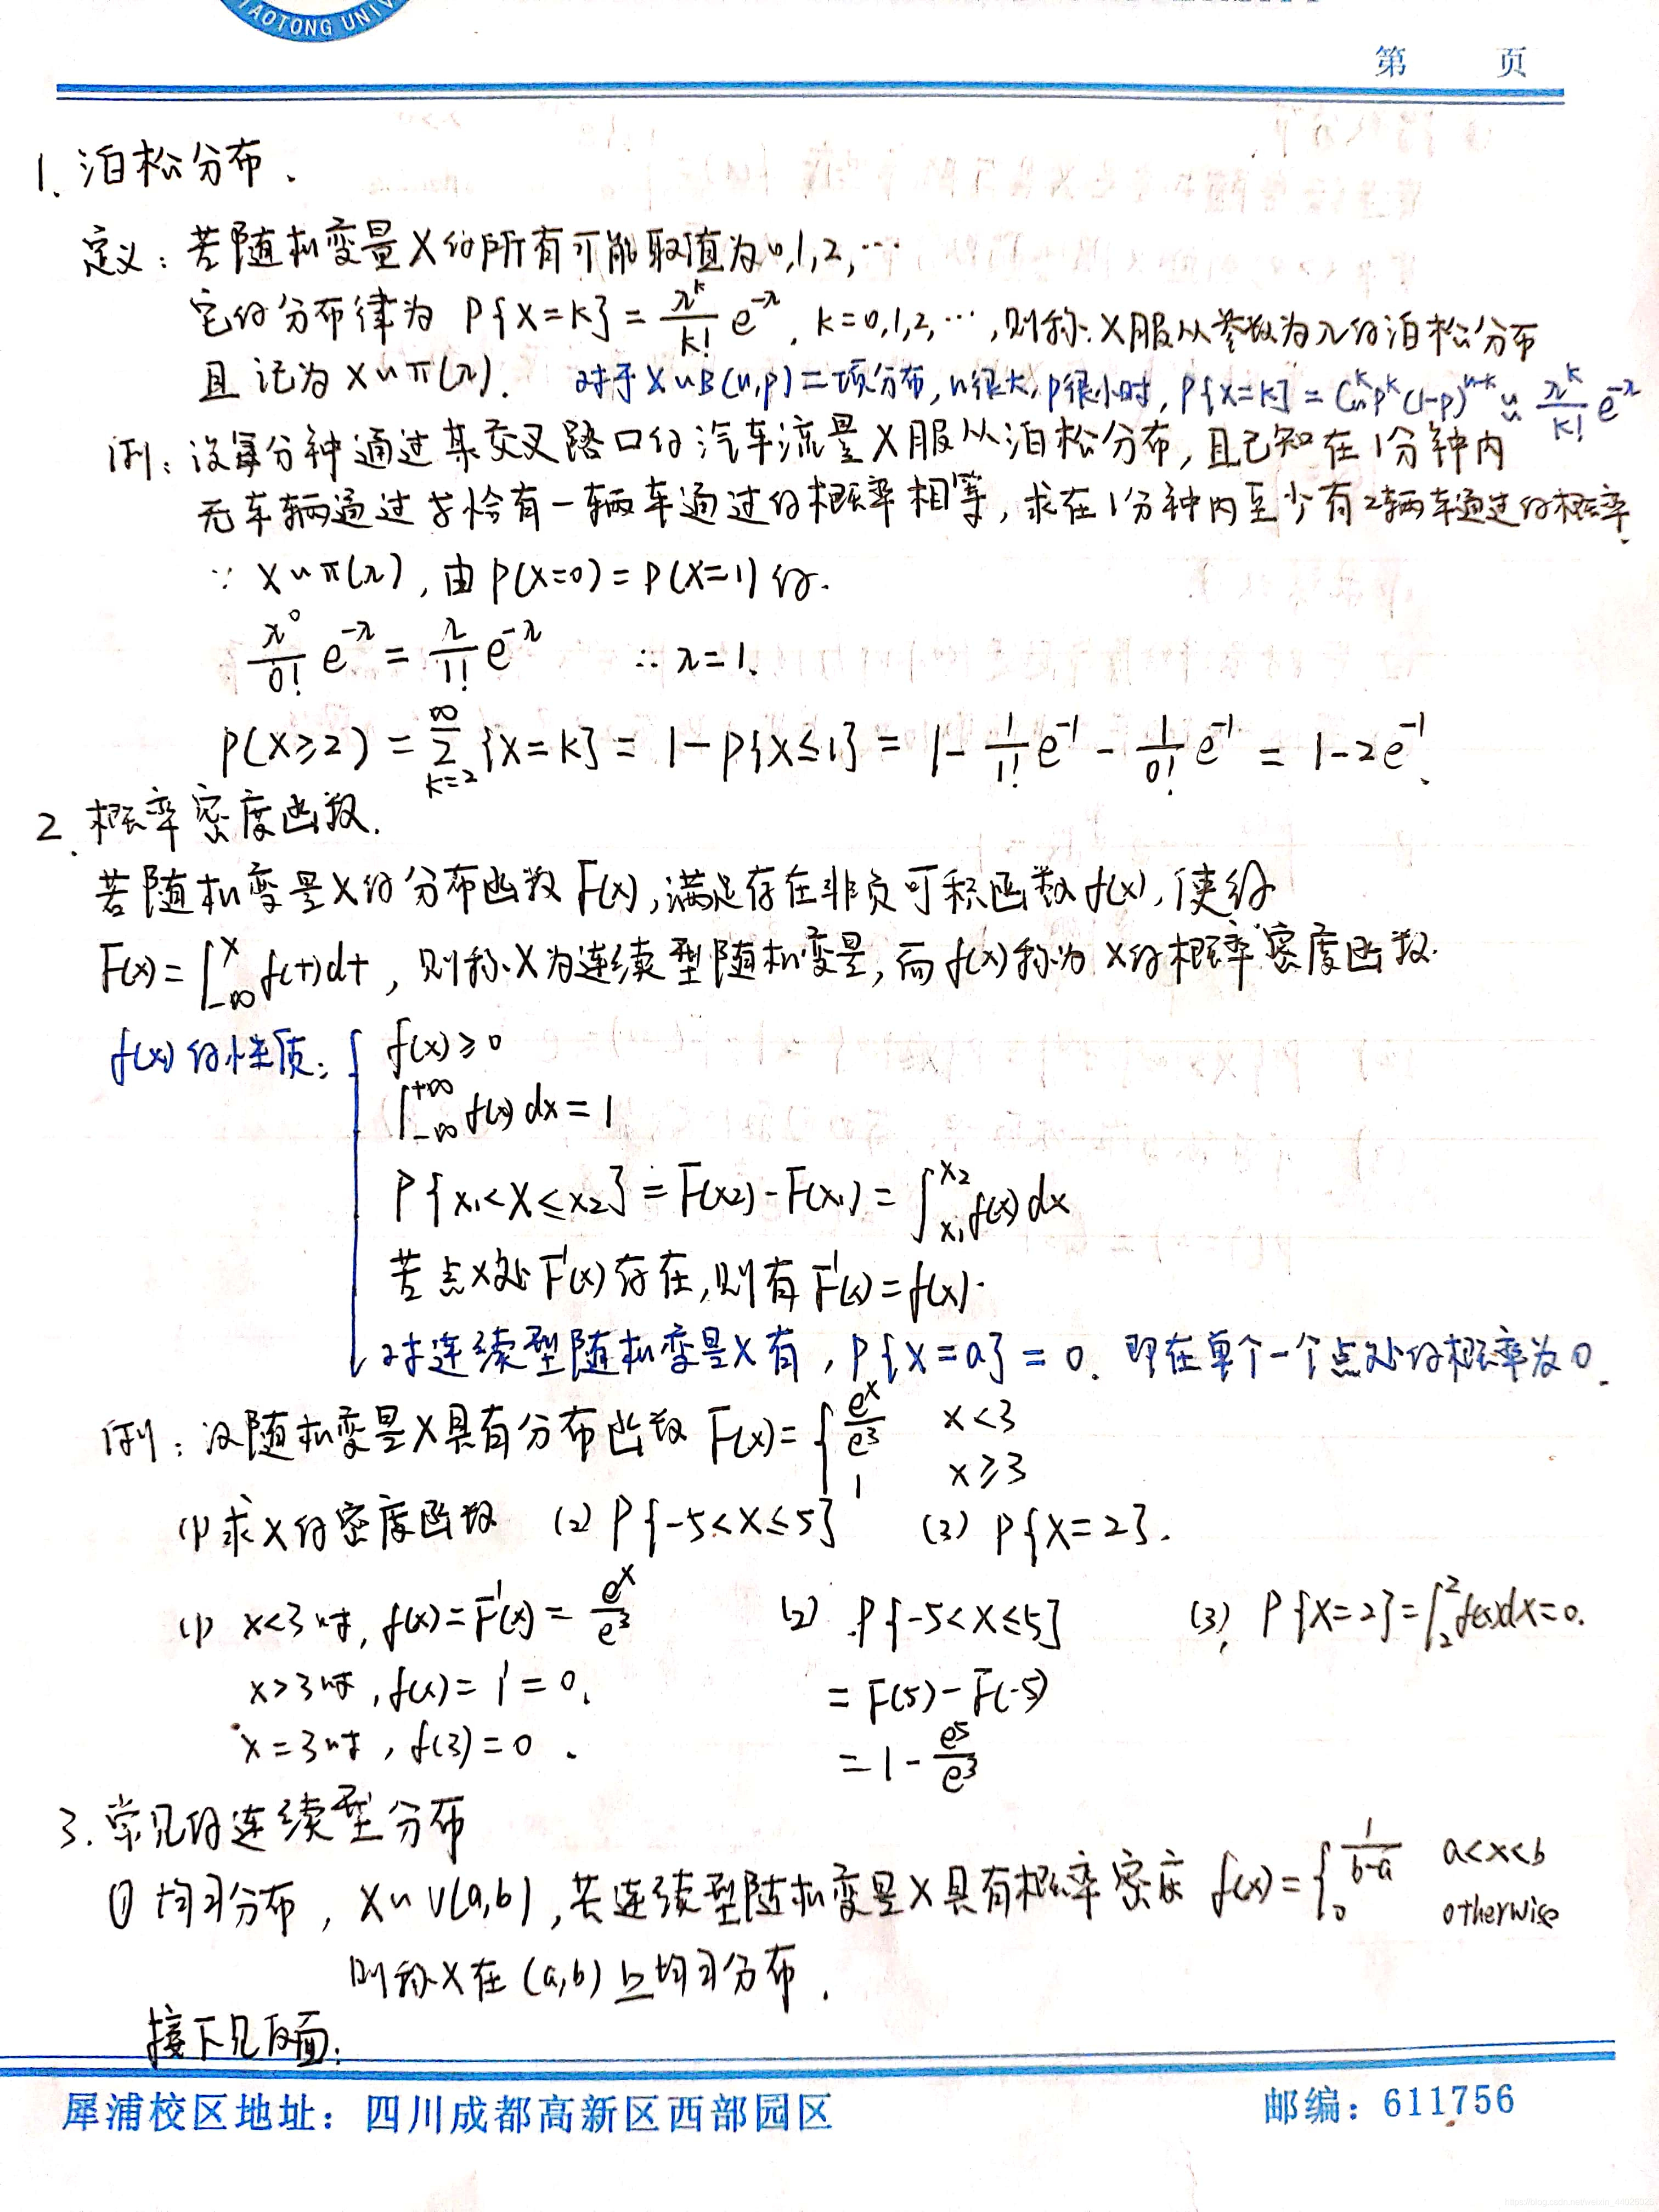 IAOTONG UNIV
第 页
1. 泊松分布.
定义: 若随机变量X的所有可能取值为0,1,2,…
它的分布律为 P{X=k} = λ^k/k! e^-λ, k=0,1,2,…,则称X服从参数为λ的泊松分布
且记为X~π(λ). 对于X~B(n,p)二项分布,n很大,p很小时, P{X=k} = C_n^k p^k (1-p)^{n-k} ≈ λ^k/k! e^-λ
例: 设每分钟通过某交叉路口的汽车流量X服从泊松分布,且已知在1分钟内
无车辆通过与恰有一辆车通过的概率相等,求在1分钟内至少有2辆车通过的概率.
∵ X~π(λ), 由P(X=0)=P(X=1)得.
λ^0/0! e^-λ = λ/1! e^-λ ∴ λ=1.
P(X≥2) = ∑_{k=2}^∞ {X=k} = 1-P{X≤1} = 1 - 1/1! e^-1 - 1/0! e^-1 = 1-2e^-1.
2. 概率密度函数.
若随机变量X的分布函数F(x),满足存在非负可积函数f(x),使得
F(x)=∫_{-∞}^x f(t)dt, 则称X为连续型随机变量,而f(x)称为X的概率密度函数.
f(x)的性质: { f(x)≥0
∫_{-∞}^{+∞} f(x)dx=1
P{x1<X≤x2}=F(x2)-F(x1)=∫_{x1}^{x2} f(x)dx
若点x处F'(x)存在,则有F'(x)=f(x).
对连续型随机变量X有, P{X=a}=0. 即在单个一个点处的概率为0.
例: 设随机变量X具有分布函数F(x)= { e^x/e^3 x<3
1 x≥3
(1)求X的密度函数 (2) P{-5<X≤5} (3) P{X=2}.
(1) x<3时, f(x)=F'(x)=e^x/e^3 (2) P{-5<X≤5} (3), P{X=2}=∫_2^2 f(x)dx=0.
x>3时, f(x)=1'=0. =F(5)-F(-5)
x=3时, f(3)=0. =1-e^5/e^3
3. 常见的连续型分布
① 均匀分布, X~U(a,b), 若连续型随机变量X具有概率密度 f(x)= { 1/(b-a) a<x<b
0 otherwise
则称X在(a,b)上均匀分布.
接下见反面:
犀浦校区地址：四川成都高新区西部园区 邮编：611756